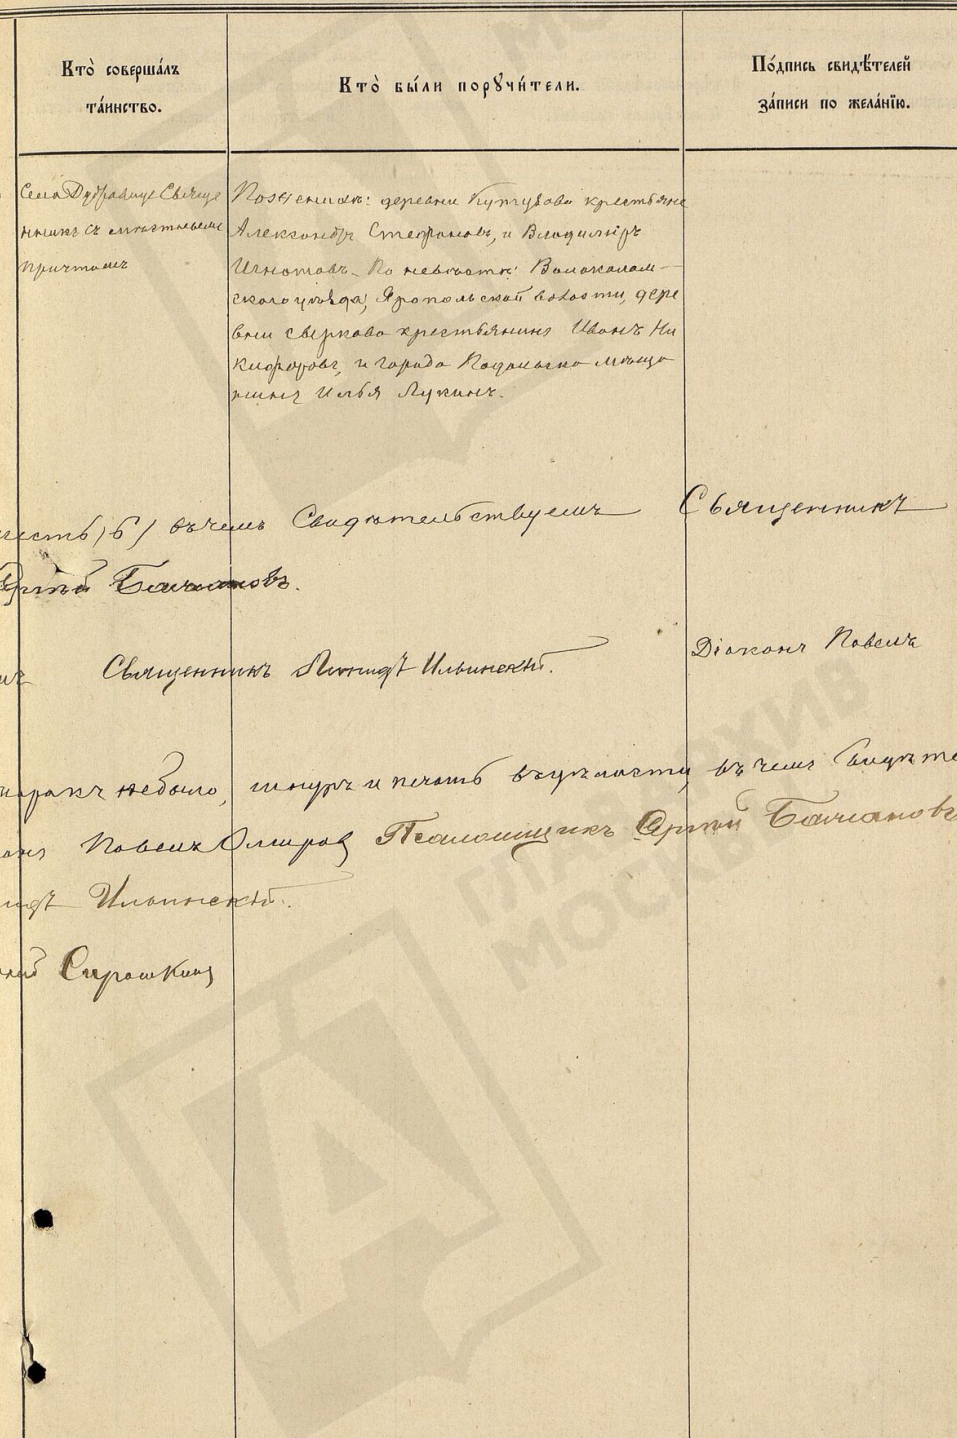 Кто̀ соверша́лъ
та́инство.
Кто̀ бы́ли порꙋчи́тели.
По́дпись свидѣ́телей
за́писи по жела́нїю.
Села Дубравицъ Священ
никъ съ мѣстнымъ
причтомъ
По женихѣ: деревни Кутузова крестьяне
Александръ Стефановъ, и Владиміръ
Игнатовъ. По невѣстѣ: Волоколам-
скаго уѣзда, Яропольской волости, дере
вни Сверково крестьянинъ Иванъ Ни
кифоровъ, и города Подольска мѣща
нинъ Илья Лукинъ.
шесть (6) въ чемъ Свидѣтельствуемъ Священникъ
Сергій
Священникъ Леонидъ Ильинскій.
Діаконъ Павелъ
помарокъ небыло, шнуръ и печать въ цѣлости, въ чемъ свидѣте
Павелъ Псаломщикъ Сергій
Ильинскій.
ГЛАВАРХИВ
МОСКВЫ